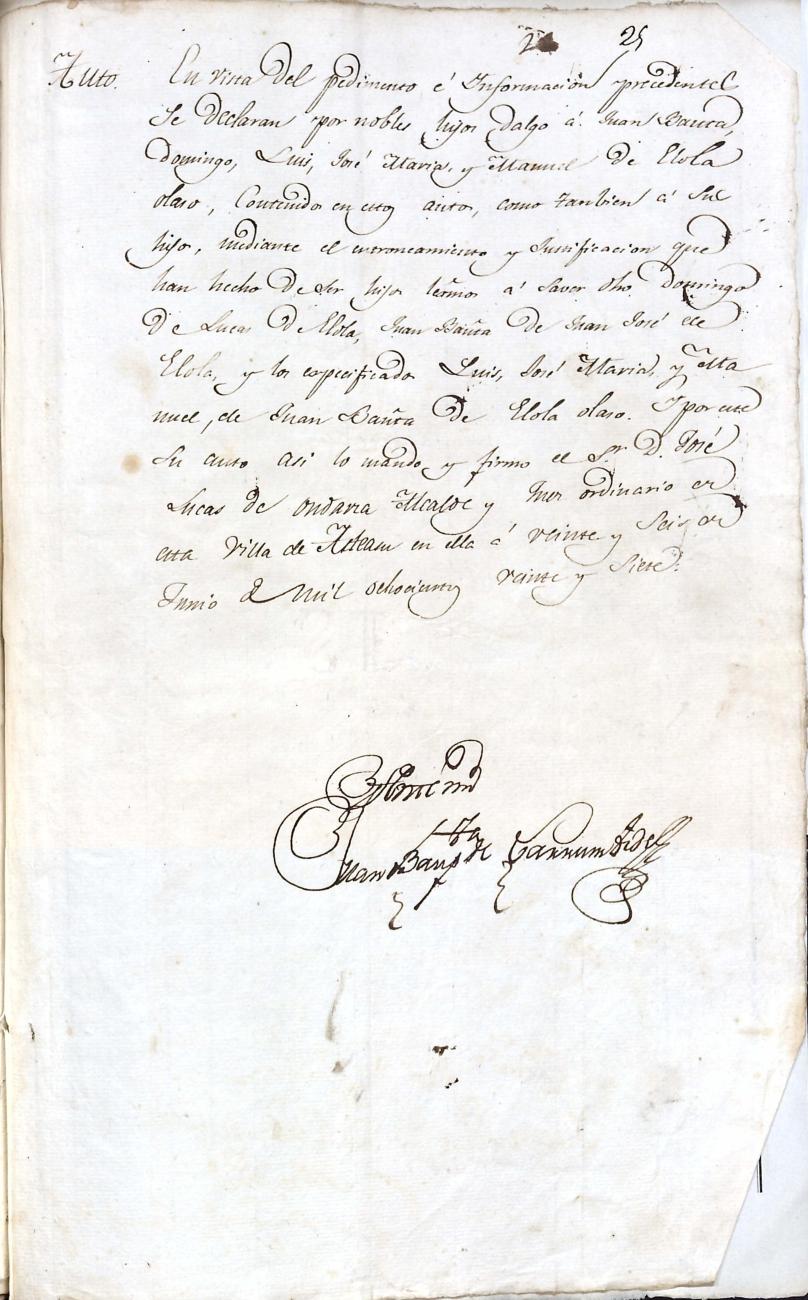 25
Auto. En vista del pedimento é Informacion precedentes
Se declaran por nobles hijos dalgo á Juan Bauta,
Domingo, Luis, José Maria, y Manuel de Elola
olaso, Contenidos en estos autos, como tanbien á sus
hijos, mediante el entroncamiento y Justificacion que
han hecho de ser hijos lexmos á saver dho Domingo
de Lucas de Elola, Juan Bauta de Juan José de
Elola, y los especificados Luis, José Maria, y Ma
nuel, de Juan Bauta de Elola olaso. I por este
su auto asi lo mando y firmo el Sr. D. José
Lucas de Ondarra Alcalde y Juez ordinario en
esta Villa de Asteasu en ella á veinte y seis de
Junio de Mil ochocientos veinte y siete.
Juan Baupta de Larrumbide